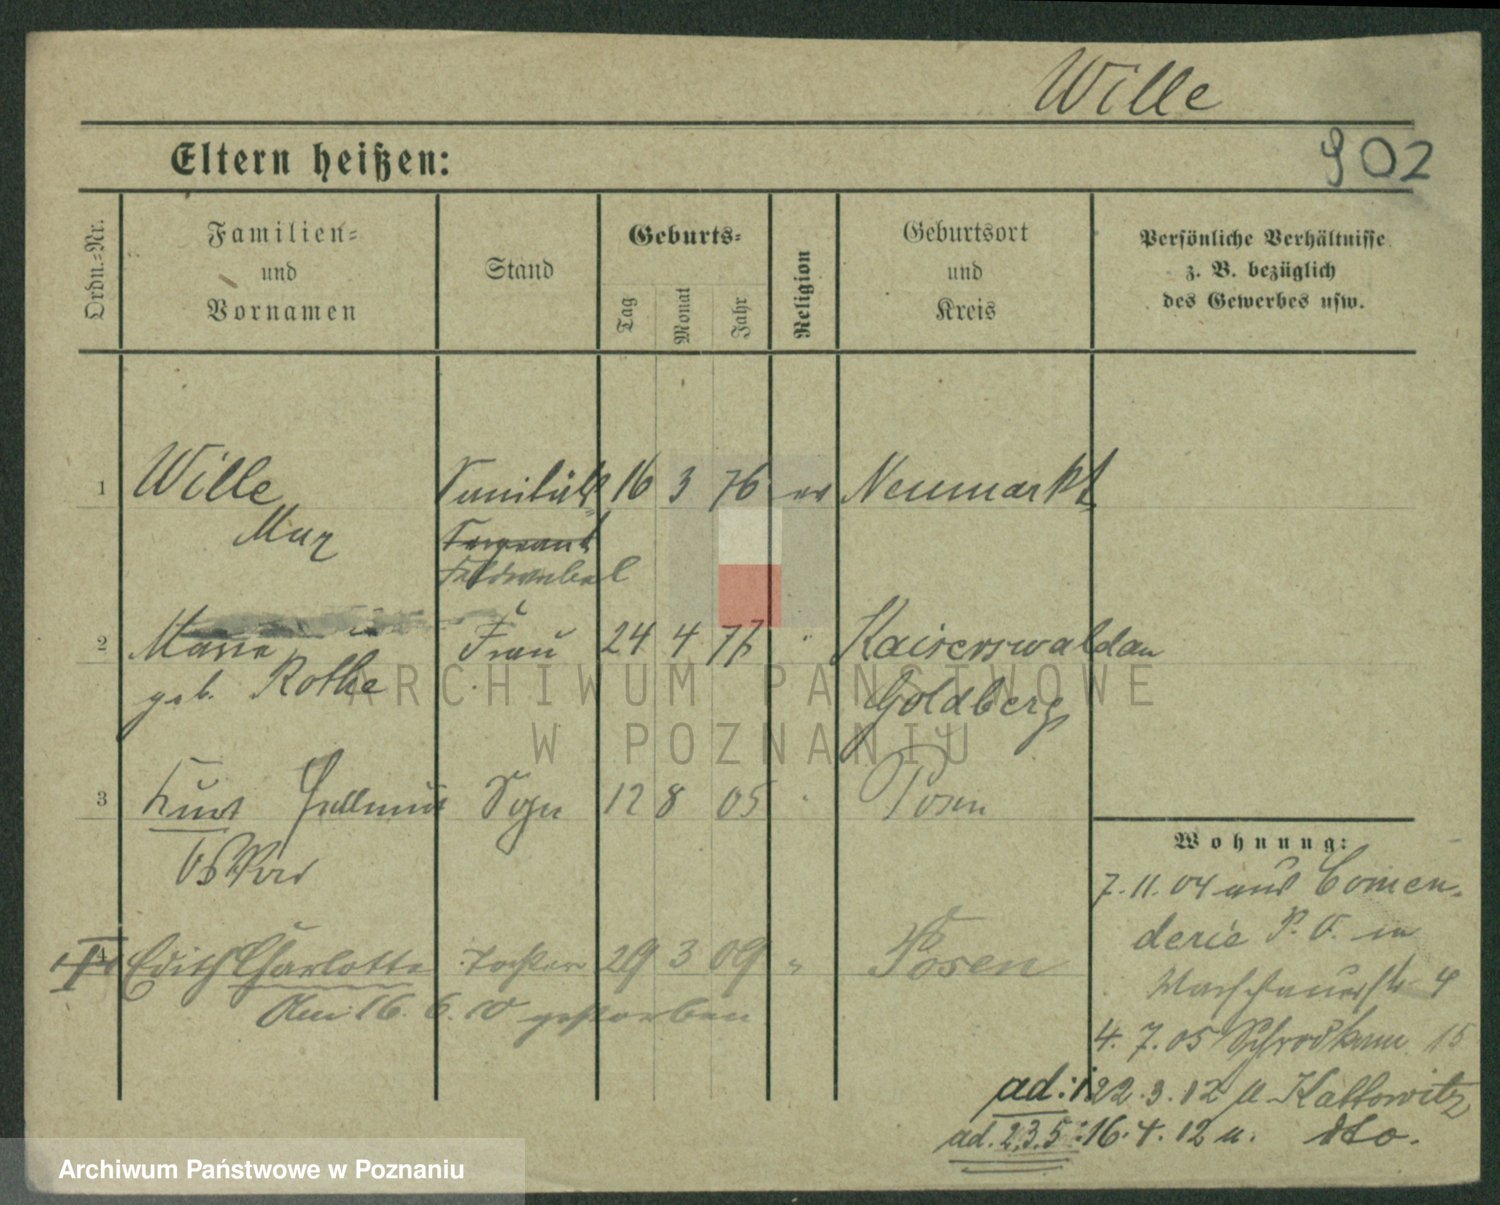 Wille
902
Eltern heißen:
Ordn.-Nr.
Familien-
und
Vornamen
Stand
Geburts-
Tag
Monat
Jahr
Religion
Geburtsort
und
Kreis
Persönliche Verhältnisse
z. B. bezüglich
des Gewerbes usw.
1 Wille Sanitäts 16 3 76 ev Neumarkt
Max Sergeant
Feldwebel
2 Maria Frau 24 4 77 " Kaiserswaldau
geb. Rothe Goldberg
3 Kurt Hellmut Sohn 12 8 05 " Posen
Oskar
4 Edith Charlotte Tochter 29 3 09 " Posen
Am 16. 6. 10 gestorben
Wohnung:
7. 11. 04 aus Comen-
derie P. O. in
Warschauerstr 4
4. 7. 05 Schrodkam 15
ad: 1 22. 3. 12 n. Kattowitz
ad. 2,3,5: 16. 4. 12 n. dto.
ARCHIWUM PAŃSTWOWE
W POZNANIU
Archiwum Państwowe w Poznaniu